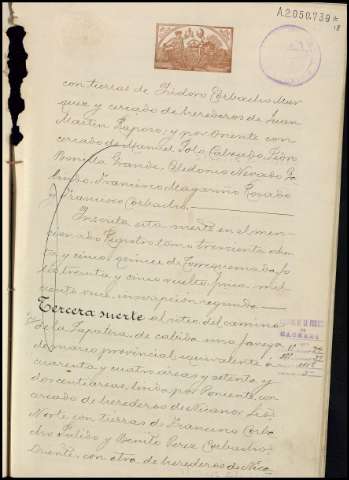 A.2950,739*
18
con tierras de Isidoro Corbacho Mar
quez y cercado de herederos de Juan
Martin Raposo; y por Oriente con
cercado de Manuel Polo Cabecho, Pedro
Bonilla Grande, Celedonio Nevado Ga
Francisco Magariño Rosado
y Francisco Corbacho.
Inscrita esta suerte en el men
cionado Registro tomo trescientos ochen
ta y cinco, quince de Torrequemada, fo
lio treinta y cinco vuelto, finca mil
ciento once, inscripcion segunda.
Tercera suerte al sitio del camino
de la Zapatera, de cabida una fanega
de marco provincial, equivalente á
cuarenta y cuatro areas y setenta y
dos centiareas; linda por Poniente, con
cercado de herederos de Nicano
Norte, con tierras de Francisco Corba
cho Pulido y Benito Perez Corbacho;
Oriente, con otra de herederos de Nica
CACERES